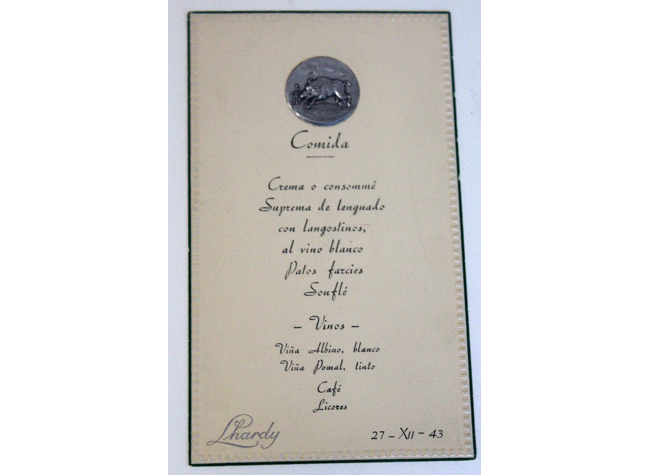 Comida
Crema o consommé
Suprema de lenguado
con langostinos,
al vino blanco
Patos farcies
Souflé
- Vinos -
Viña Albino, blanco
Viña Pomal, tinto
Café
Licores
Lhardy
27 - XII - 43